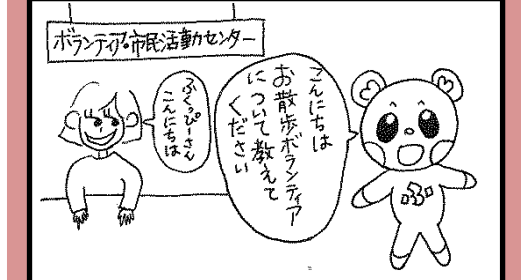 ボランティア・市民活動センター
こんにちは
お散歩ボランティア
について教えて
ください
ふくっぴーさん
こんにちは
ふ